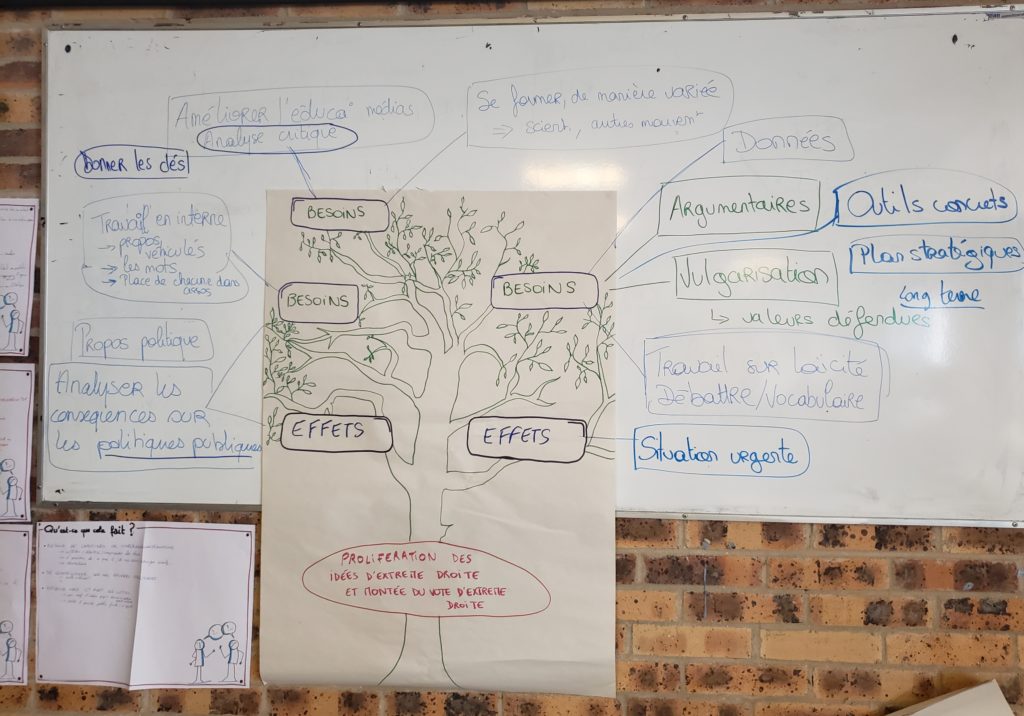 Améliorer l'éduca° médias
Analyse critique
Donner les clés
Se former, de manière variée
⇒ scient, autres mouvemt
Données
Argumentaires
Outils concrets
Plan stratégiques
Long terme
Vulgarisation
↳ valeurs défendues
Travail en interne
→ propos
véhiculés
→ les mots
→ Place de chacune dans
assos
Propos politique
Analyser les
conséquences sur
les politiques publiques
Travail sur Laïcité
Débattre/Vocabulaire
Situation urgente
BESOINS
BESOINS
BESOINS
EFFETS
EFFETS
PROLIFERATION DES
IDÉES D'EXTREME DROITE
ET MONTÉE DU VOTE D'EXTREME
DROITE
Qu'est-ce que cela fait ?